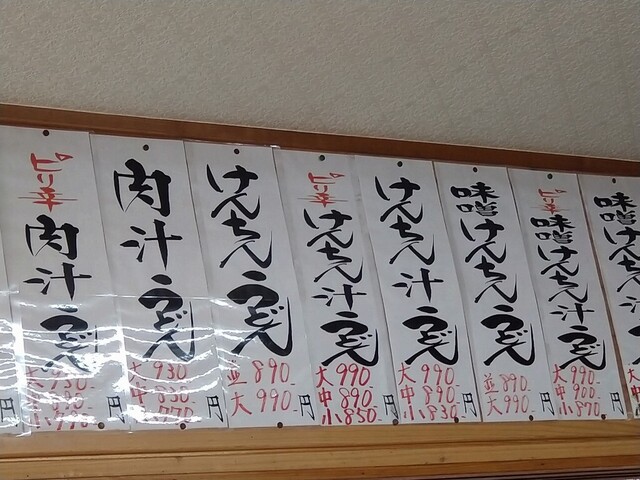 円
ピリ辛
肉汁うどん
大
円
肉汁うどん
大 930
中 830-
770-
円
けんちんうどん
並 890-
大 990-
円
ピリ辛
けんちん汁うどん
大 990-
中 890-
小 850-
円
けんちん汁うどん
大 990-
中 890-
小 830-
円
味噌けんちんうどん
並 890-
大 990-
円
ピリ辛
味噌けんちん汁うどん
大 990-
中 900-
小 870-
円
味噌けんちん汁
大
中
小